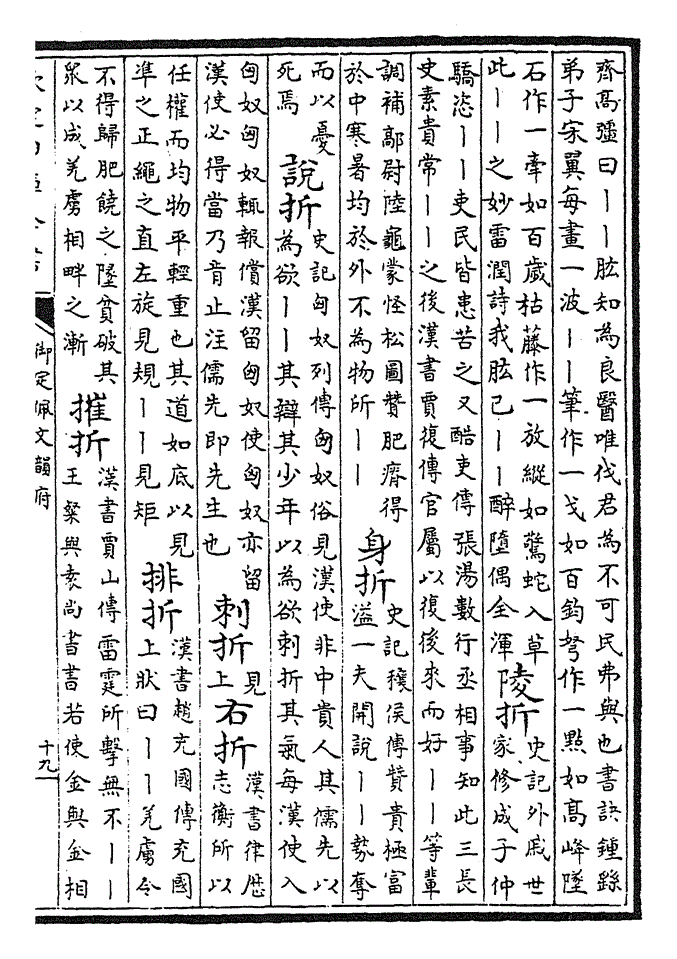 齊高彊曰丨丨肱知為良醫唯伐君為不可民弗與也書訣鍾繇
弟子宋翼每畫一波丨丨筆作一戈如百鈞弩作一點如高峰墜
石作一牽如百歲枯藤作一放縱如驚蛇入草
此丨丨之妙雷潤詩我肱已丨丨醉墮偶全渾
陵折
史記外戚世
家修成子仲
驕恣丨丨吏民皆患苦之又酷吏傳張湯數行丞相事知此三長
史素貴常丨丨之後漢書賈復傳官屬以復後來而好丨丨等輩
調補鄗尉陸龜蒙怪松圖贊肥瘠得
於中寒暑均於外不為物所丨丨
身折
史記穰侯傳贊貴極富
溢一夫開說丨丨勢奪
而以憂
死焉
說折
史記匈奴列傳匈奴俗見漢使非中貴人其儒先以
為欲丨丨其辯其少年以為欲刺折其氣每漢使入
匈奴匈奴輒報償漢留匈奴使匈奴亦留
漢使必得當乃音止注儒先即先生也
刺折
見
上
右折
漢書律歷
志衡所以
任權而均物平輕重也其道如底以見
準之正繩之直左旋見規丨丨見矩
排折
漢書趙充國傳充國
上狀曰丨丨羌虜令
不得歸肥饒之墬貧破其
眾以成羌虜相畔之漸
摧折
漢書賈山傳雷霆所擊無不丨丨
王粲與袁尚書書若使金與金相
御定佩文韻府
十九